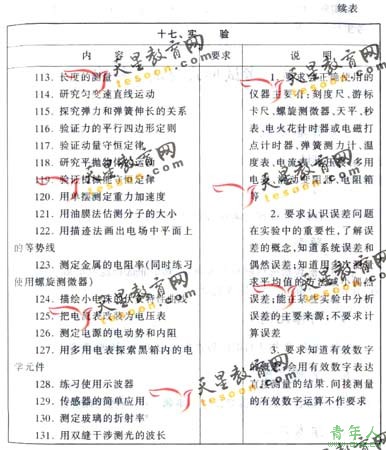 续表
十七、实 验
内 容
要求
说 明
113. 长度的测量
114. 研究匀变速直线运动
115. 探究弹力和弹簧伸长的关系
116. 验证力的平行四边形定则
117. 验证动量守恒定律
118. 研究平抛物体的运动
119. 验证机械能守恒定律
120. 用单摆测定重力加速度
121. 用油膜法估测分子的大小
122. 用描迹法画出电场中平面上
的等势线
123. 测定金属的电阻率(同时练习
使用螺旋测微器)
124. 描绘小电珠的伏安特性曲线
125. 把电流表改装为电压表
126. 测定电源的电动势和内阻
127. 用多用电表探索黑箱内的电
学元件
128. 练习使用示波器
129. 传感器的简单应用
130. 测定玻璃的折射率
131. 用双缝干涉测光的波长
1. 要求会正确使用的
仪器主要有:刻度尺、游标
卡尺、螺旋测微器、天平、秒
表、电火花计时器或电磁打
点计时器、弹簧测力计、温
度表、电流表、电压表、多用
电表、滑动变阻器、电阻箱
等
2. 要求认识误差问题
在实验中的重要性,了解误
差的概念,知道系统误差和
偶然误差;知道用多次测量
求平均值的方法减小偶然
误差;能在某些实验中分析
误差的主要来源;不要求计
算误差
3. 要求知道有效数字
的概念,会用有效数字表达
直接测量的结果. 间接测量
的有效数字运算不作要求
天星教育网
tesoon.com
青年人